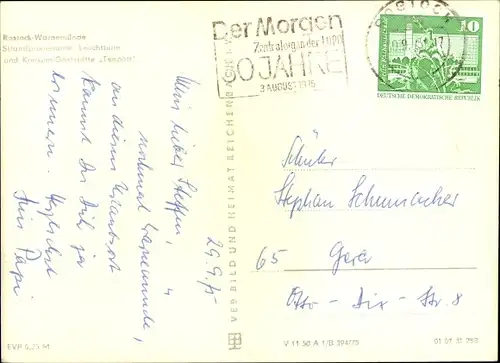 Rostock-Warnemünde
Strandpromenade, Leuchtturm
und Konsum-Gaststätte „Teepott"
Der Morgen
Zentralorgan der LDPD
30 JAHRE
3. AUGUST 1975
ROSTOCK
10
DEUTSCHE DEMOKRATISCHE REPUBLIK
29.9.75
Mein lieber Steffen,
nochmal Warnemünde,
an diesen Urlaubsort
kannst Du Dich ja
erinnern. Herzlichst
Dein Papi
VEB BILD UND HEIMAT REICHENBACH I. V.
Schüler
Stephan Schumacher
65 Gera
Otto-Dix-Str. 8
EVP 0,20 M
V 11 50 A 1/B 594/75